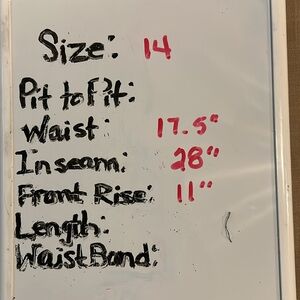 Size: 14
Pit to Pit:
Waist: 17.5"
Inseam: 28"
Front Rise: 11"
Length:
Waist Band: